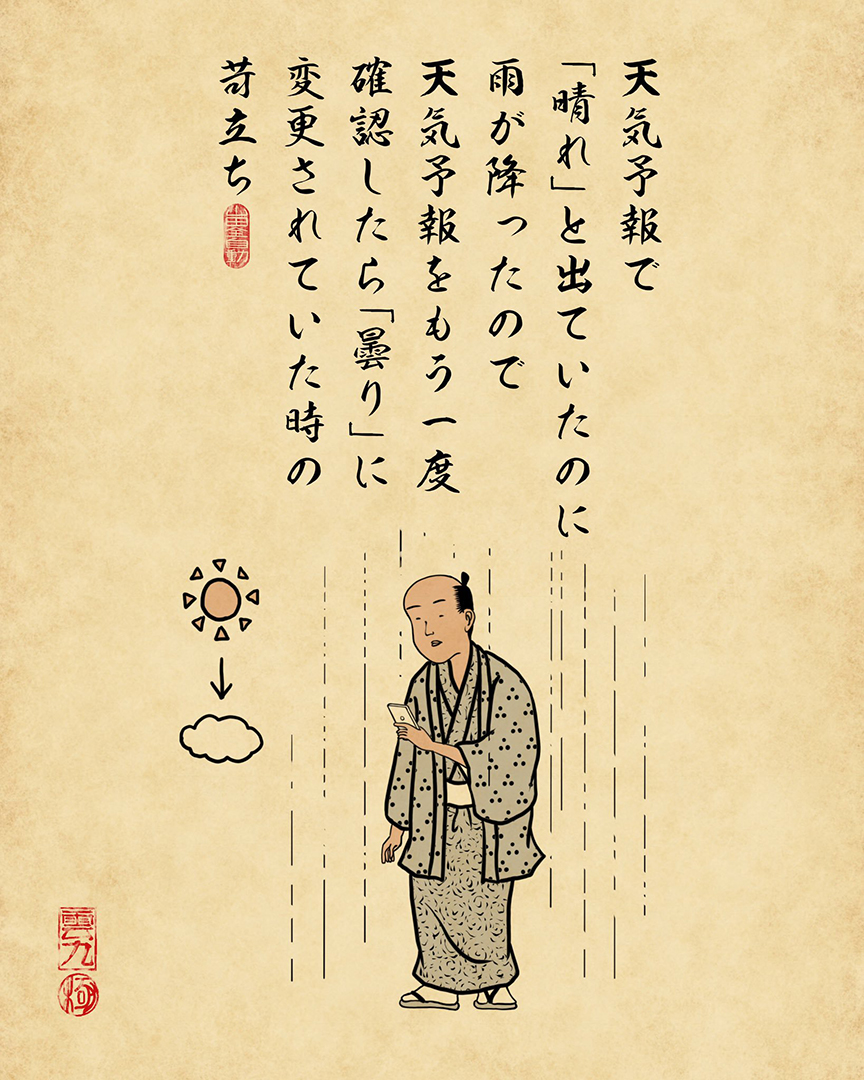 天気予報で
「晴れ」と出ていたのに
雨が降ったので
天気予報をもう一度
確認したら「曇り」に
変更されていた時の
苛立ち
雲丸
極